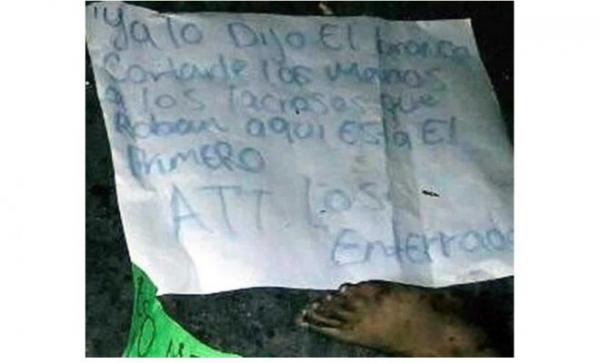 Ya lo Dijo El bronco
Cortarle las manos
A los lacrosos que
Roban aqui ESta El
PrimERO
ATT Los
Enterrado